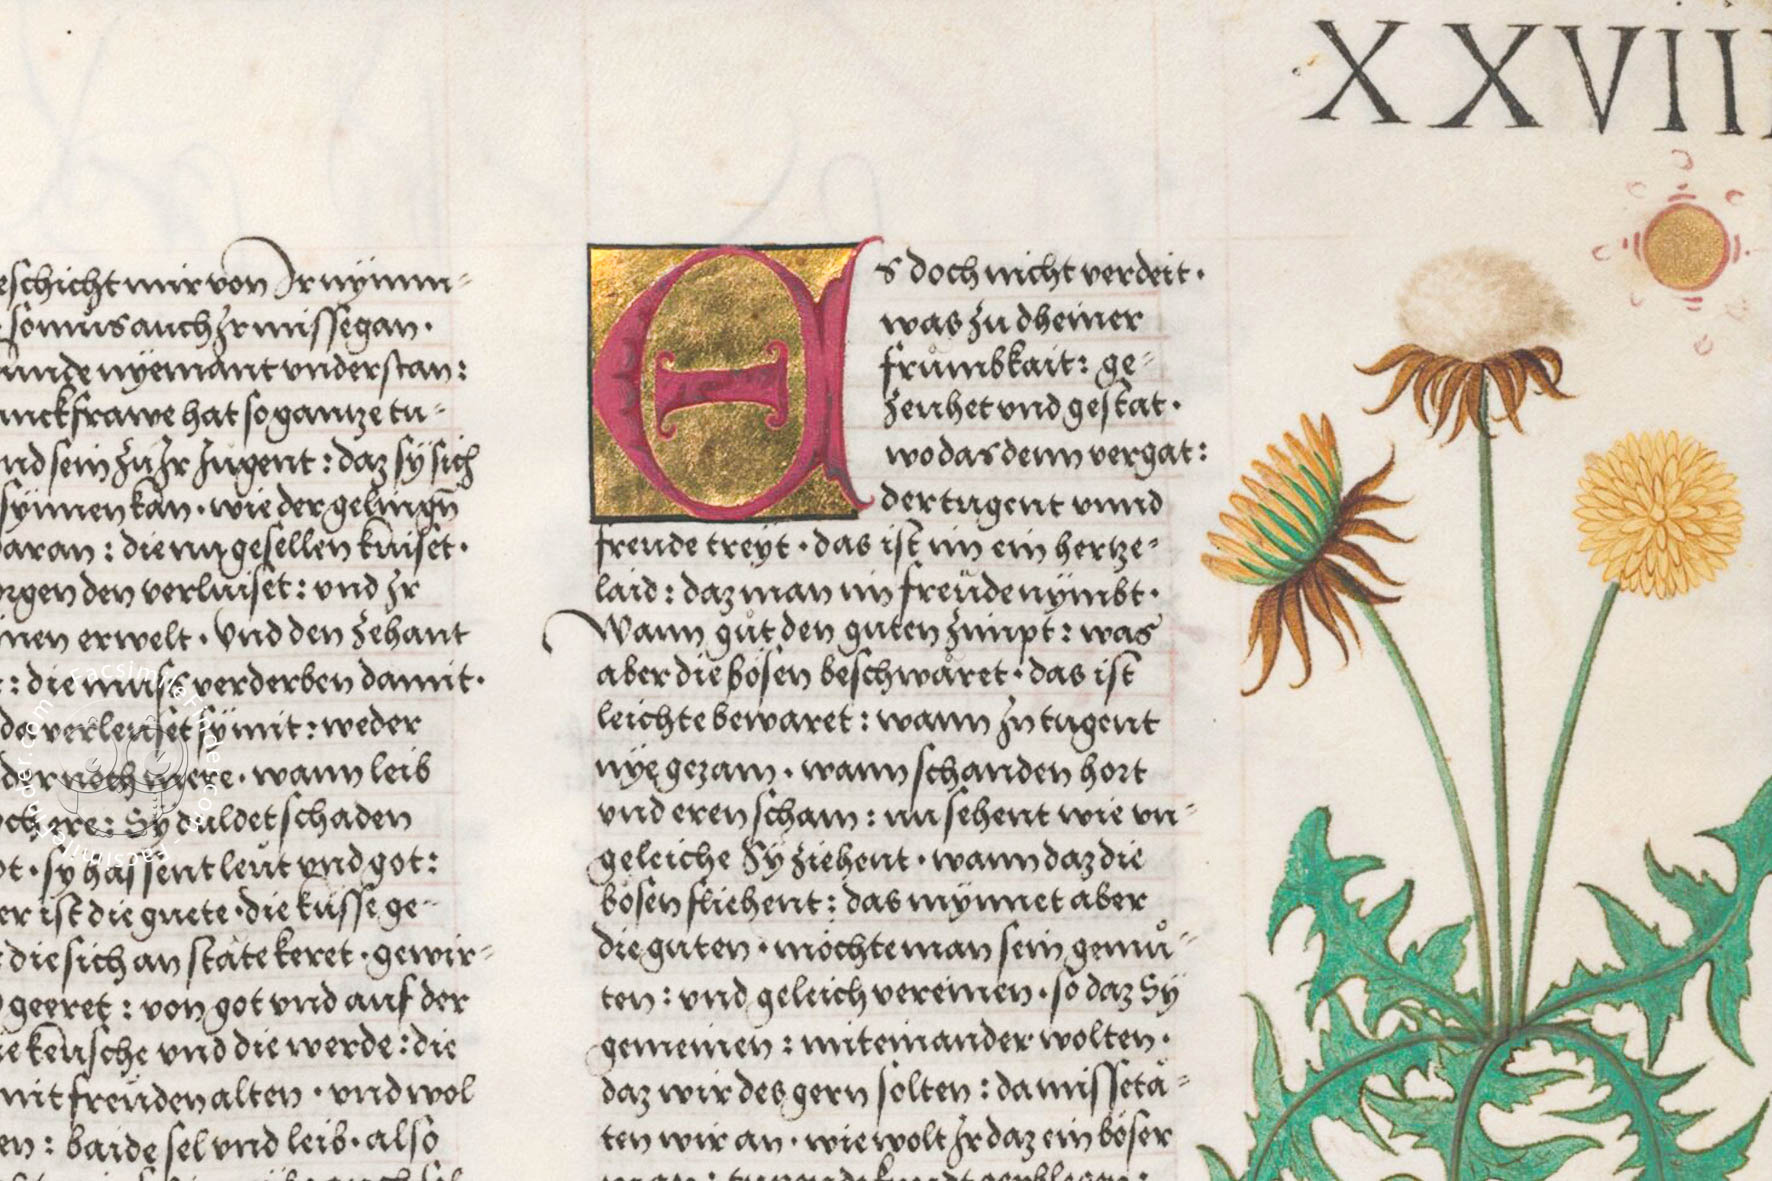 XXVIII
eschicht mir von Ir nymm=
somüs auch Jr missegan.
unde nyemant understan:
unckfrawe hat so gantze tu=
nd sein zu Jr Jugent: daz sÿ sich
synnen kan. wie der gelingn̄
daran: die nu gesellen kuiset.
orgen den verluiset: vnd Jr
nen erwelt. Vnd den zehant
: die muss verderben damit.
da verleuset sÿ mit: weder
der noch mere. wann leib
Sy duldet schaden
ot. sy hassent leüt vnd got:
er ist die guete. die küsse ge=
die sich an stäte keret. gewir=
geeret: von got vnd auf der
ie keüsche vnd die werde: die
mit freüden alten. vnd wol
en: baide sel vnd leib. also
Es doch nicht verdeit.
was zu dheiner
frumbkait: ge=
zenhet vnd gestat.
wo das denn vergat:
der tugent vnnd
freude treyt. das ist im ein hertze=
laid: daz man im freüde nymbt.
Wann gůt den guten zimpt: was
aber die bösen beschwäret. das ist
leichte bewaret: wann In tugent
nye gezam. wann schanden hort
vnd eren scham: nu sehent wie vn=
geleiche Sy ziehent. wann daz die
bösen fliehent: das mynnet aber
die guten. möchte man sein gemů=
ten: vnd geleich vereinen. so daz Sÿ
gemeinen: miteinander wolten.
daz wir des gern solten: da missetä=
ten wir an. wie wolt Jr daz ein böser
Facsimilefinder.com